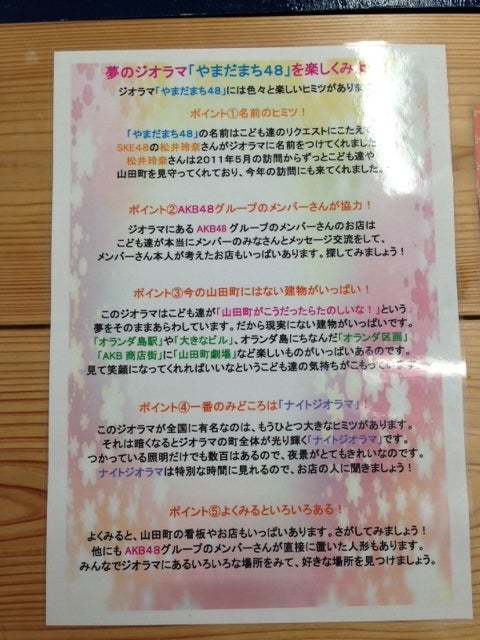 夢のジオラマ「やまだまち48」を楽しくみよ
ジオラマ「やまだまち48」には色々と楽しいヒミツがありま
ポイント①名前のヒミツ！
「やまだまち48」の名前はこども達のリクエストにこたえて
SKE48の松井玲奈さんがジオラマに名前をつけてくれました
松井玲奈さんは2011年5月の訪問からずっとこども達や
山田町を見守ってくれており、今年の訪問にも来てくれました。
ポイント②AKB48グループのメンバーさんが協力！
ジオラマにある AKB48 グループのメンバーさんのお店は
こども達が本当にメンバーのみなさんとメッセージ交流をして、
メンバーさん本人が考えたお店もいっぱいあります。探してみましょう！
ポイント③今の山田町にはない建物がいっぱい！
このジオラマはこども達が「山田町がこうだったらたのしいな！」という
夢をそのままあらわしています。だから現実にない建物がいっぱいです。
「オランダ島駅」や「大きなビル」、オランダ島にちなんだ「オランダ区画」
「AKB 商店街」に「山田町劇場」など楽しいものがいっぱいあるのです。
見て笑顔になってくれればいいなというこども達の気持ちがこもっています
ポイント④一番のみどころは「ナイトジオラマ」！
このジオラマが全国に有名なのは、もうひとつ大きなヒミツがあります。
それは暗くなるとジオラマの町全体が光り輝く「ナイトジオラマ」です。
つかっている照明だけでも数百はあるので、夜景がとてもきれいなのです。
ナイトジオラマは特別な時間に見れるので、お店の人に聞きましょう！
ポイント⑤よくみるといろいろある！
よくみると、山田町の看板やお店もいっぱいあります。さがしてみましょう！
他にも AKB48グループのメンバーさんが直接に置いた人形もあります。
みんなでジオラマにあるいろいろな場所をみて、好きな場所を見つけましょう。